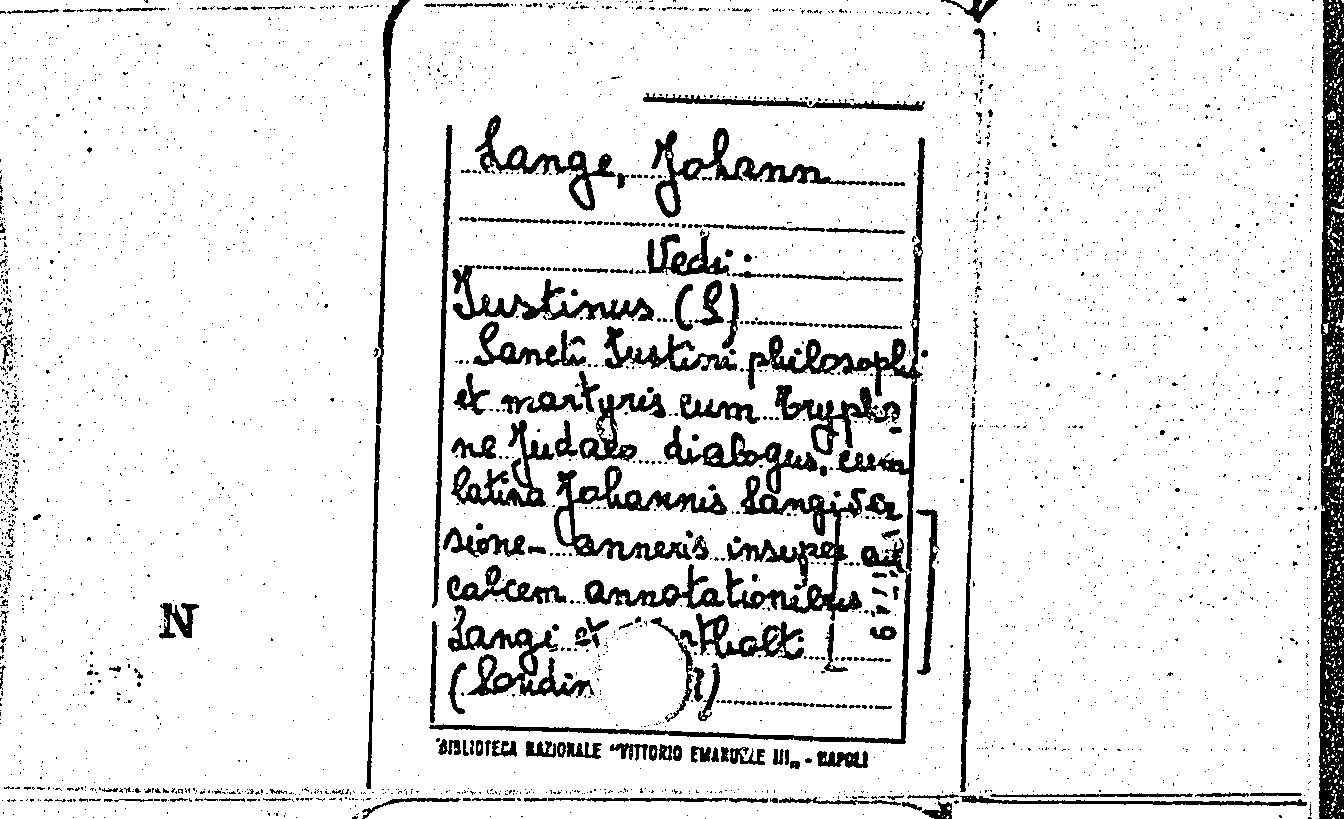 Lange, Johann
Vedi:
Justinus (S)
Sancti Justini philosophi
et martyris cum Trypho
ne Judaeo dialogus, cum
latina Johannis Langi ver
sione- annexis insuper ad
calcem annotationibus
Langi et
(Londin
N
BIBLIOTECA NAZIONALE "VITTORIO EMANUELE III„ - NAPOLI